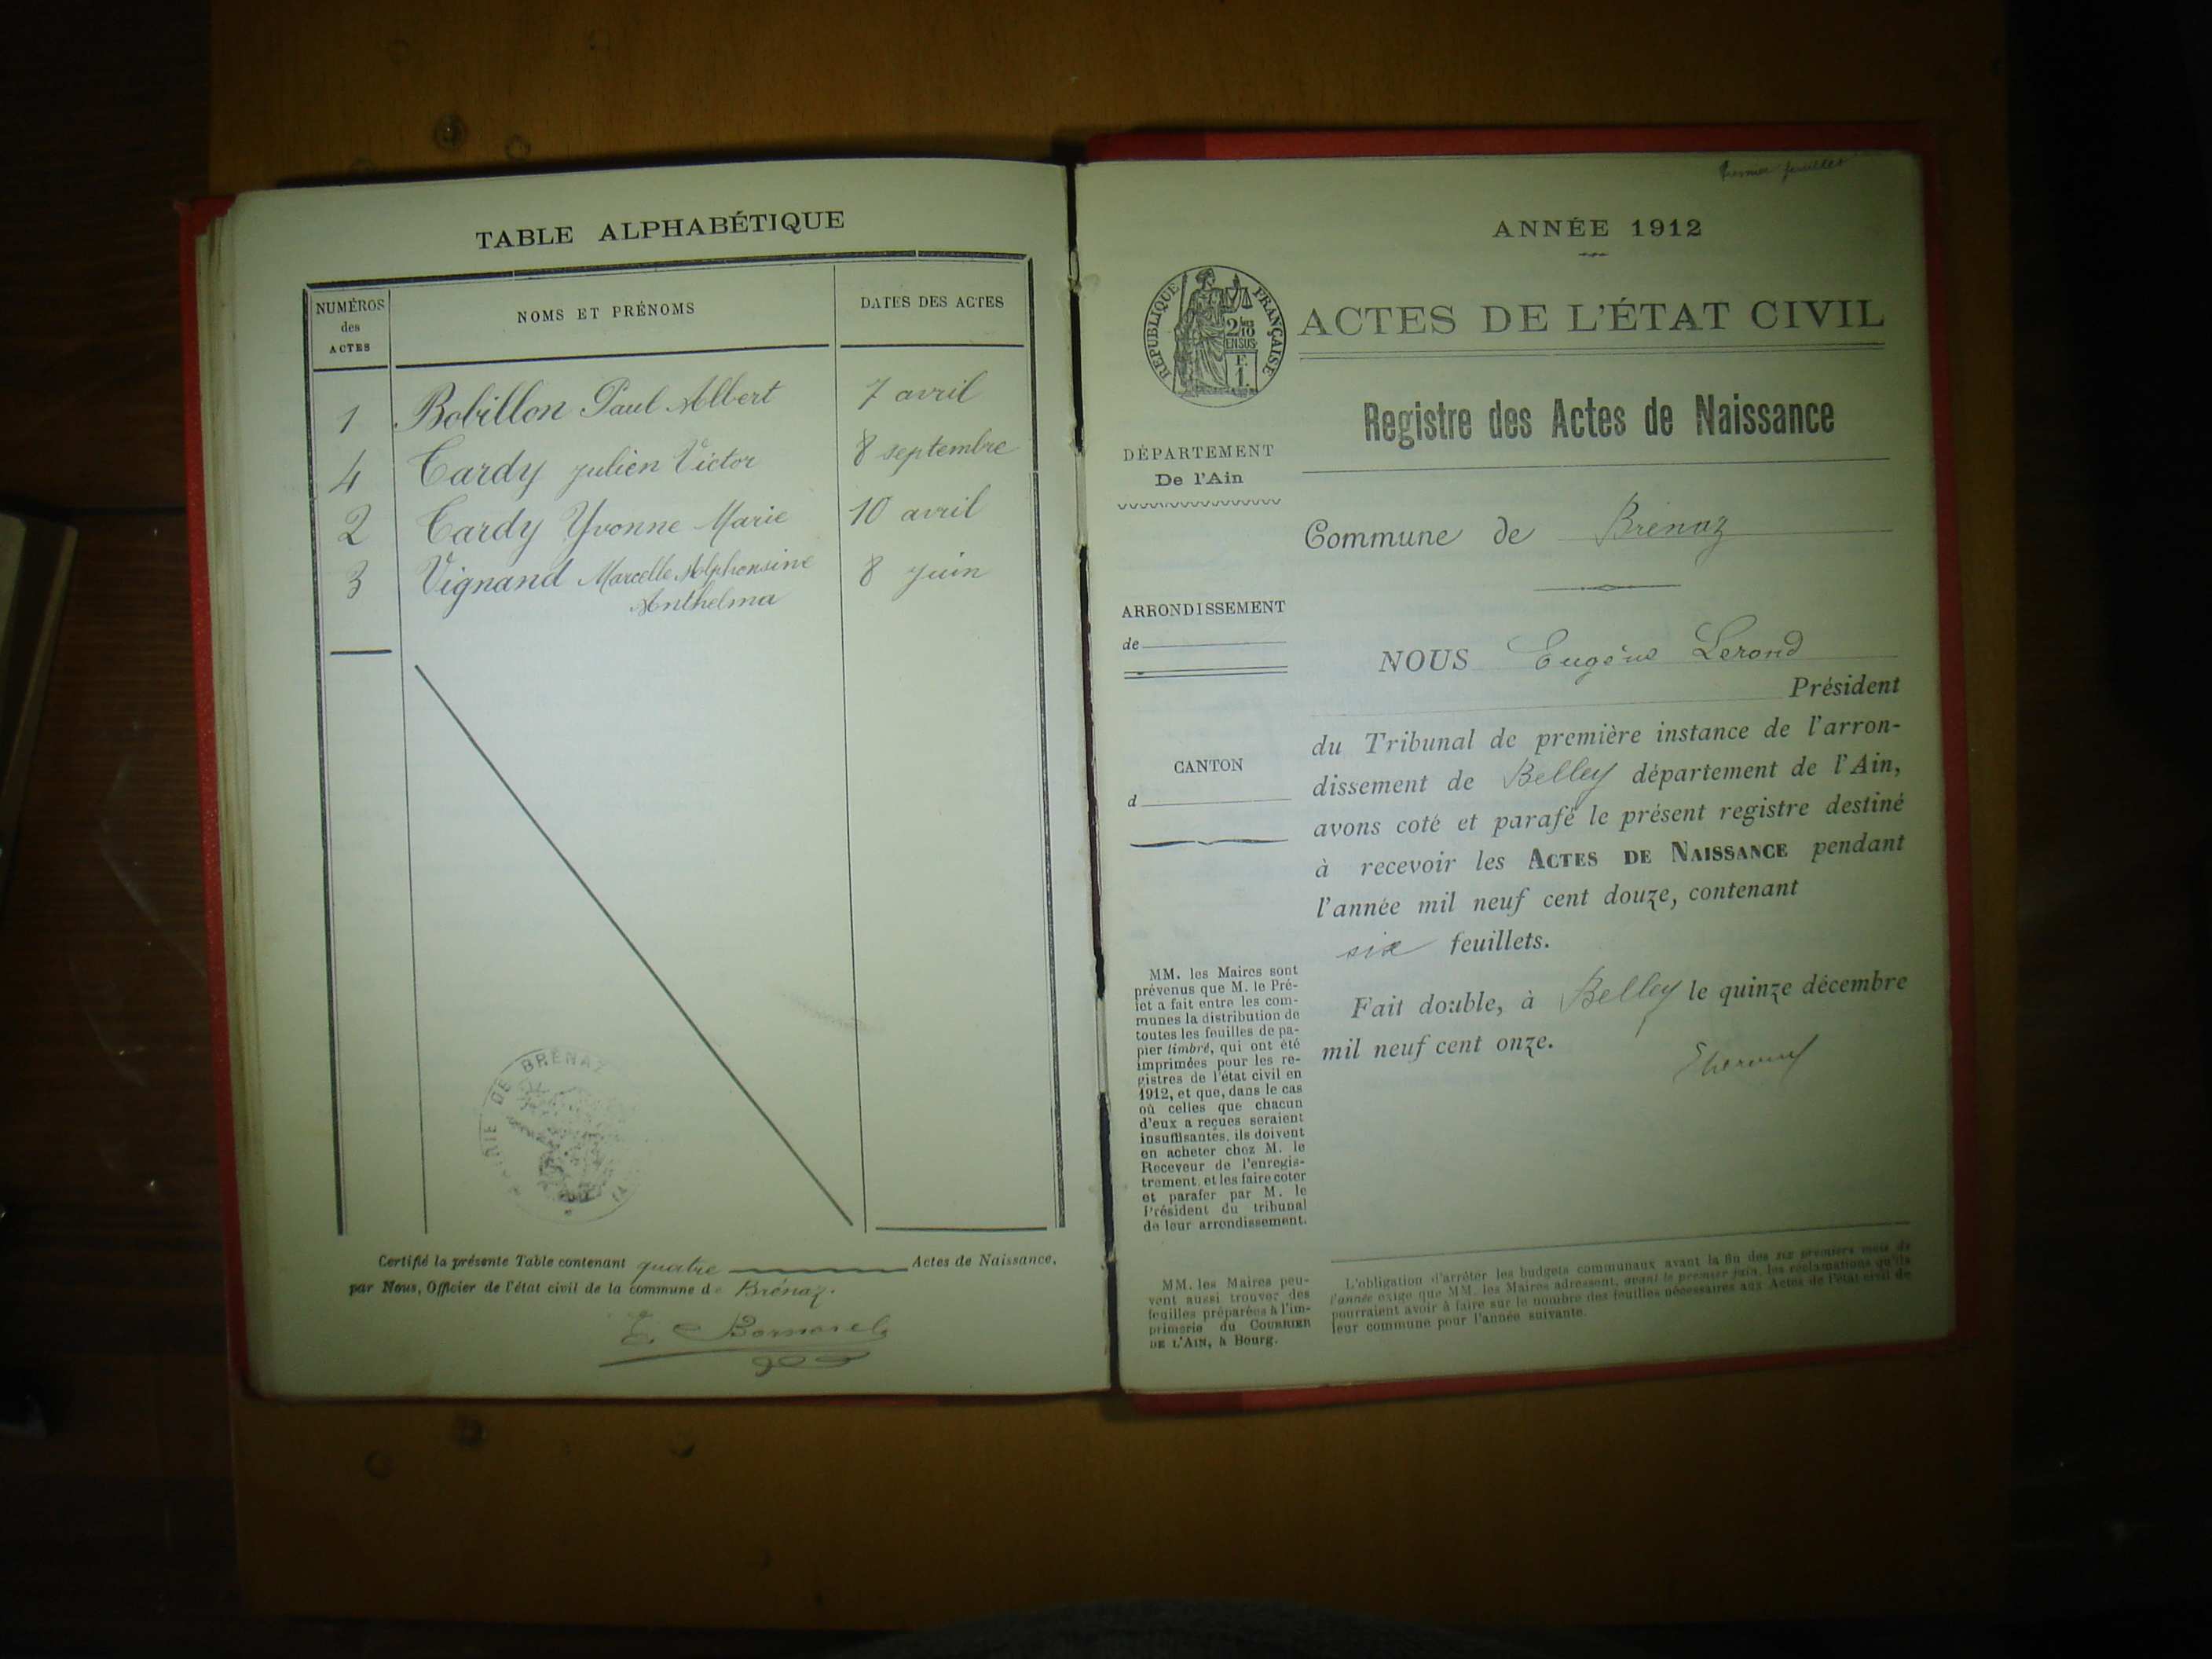 TABLE ALPHABÉTIQUE
NUMÉROS
des
ACTES
NOMS ET PRÉNOMS
DATES DES ACTES
1 Bobillon Paul Albert 7 avril
4 Cardy Julien Victor 8 septembre
2 Cardy Yvonne Marie 10 avril
3 Vignand Marcelle Alphonsine 8 juin
Anthelma
DE BRÉNAZ
Certifié la présente Table contenant quatre Actes de Naissance,
par Nous, Officier de l'état civil de la commune de Brénaz.
Premier feuillet
ANNÉE 1912
RÉPUBLIQUE FRANÇAISE
ACTES DE L'ÉTAT CIVIL
Registre des Actes de Naissance
DÉPARTEMENT
De l'Ain
Commune de Brénaz
ARRONDISSEMENT
de
NOUS Eugène Lerond
Président
CANTON
d
du Tribunal de première instance de l'arron-
dissement de Belley département de l'Ain,
avons coté et parafé le présent registre destiné
à recevoir les ACTES DE NAISSANCE pendant
l'année mil neuf cent douze, contenant
six feuillets.
Fait double, à Belley le quinze décembre
mil neuf cent onze.
MM. les Maires sont
prévenus que M. le Pré-
fet a fait entre les com-
munes la distribution de
toutes les feuilles de pa-
pier timbré, qui ont été
imprimées pour les re-
gistres de l'état civil en
1912, et que, dans le cas
où celles que chacun
d'eux a reçues seraient
insuffisantes, ils doivent
en acheter chez M. le
Receveur de l'enregis-
trement et les faire coter
et parafer par M. le
Président du tribunal
de leur arrondissement.
MM. les Maires peu-
vent aussi trouver des
feuilles préparées à l'im-
primerie du COURRIER
DE L'AIN, à Bourg.
L'obligation d'arrêter les budgets communaux avant la fin des six premiers mois de
l'année exige que MM. les Maires adressent, avant le premier juin, les réclamations qu'ils
pourraient avoir à faire sur le nombre des feuilles nécessaires aux Actes de l'état civil de
leur commune pour l'année suivante.